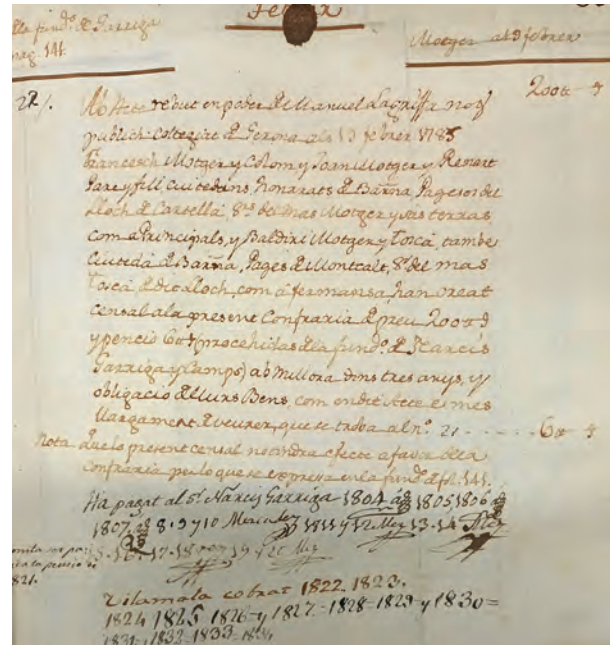 Febrer
lla fund.º de Garriga
pag. 141
Motger als 9 febrer
22/. Ab Acte rebut en poder de Manuel Lagrifa not
publich colegiat de Gerona als 13 febrer 1785
Francesch Motger y Colom y Joan Motger y Renart
Pare y fill, ciutedans honrats de Barna, Pagesos del
Lloch de Cartellá, Srs del mas Motger y sas terras
com a Principals, y Baldiri Motger y Toscá, tambe
Ciutedá de Barna, Pages de Montcalt, Sr del mas
Toscá, de dit lloch, com á fermansa, han creat
censal ala present Confraria de preu 200
y penció 6 (procehidas dela fund.º de Narcis
Garriga y Camps) ab millora dins tres anys, y
obligació de llurs Bens, com en dit Acte es mes
llargament de veurer, que se troba al nº. 21 - - - - - 6
Nota que lo present censal no tindra efecte a favor dela
Confraria per lo que se expressa en la fund.º de f. 141.
Ha pagat al Sr. Narcis Garriga 1804 1805 1806
1807 8-9 y 10 1811 y 12 13-14
15-16-17-18 19 y 20
1821.
Vilamala cobrat 1822 1823.
1824 1825 1826 y 1827-1828-1829 y 1830=
1831-1832-1833-1834